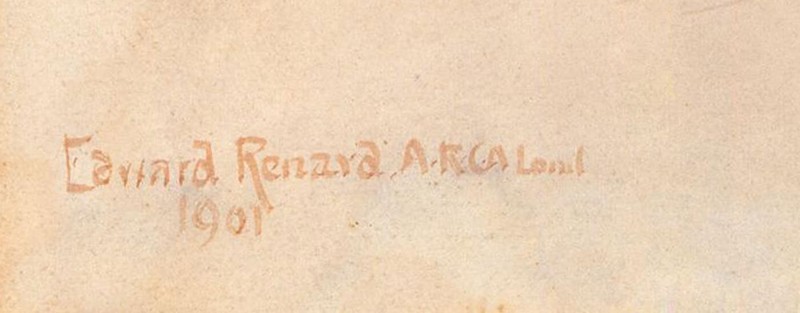 Edward Renard A.R.C.A Lond
1901